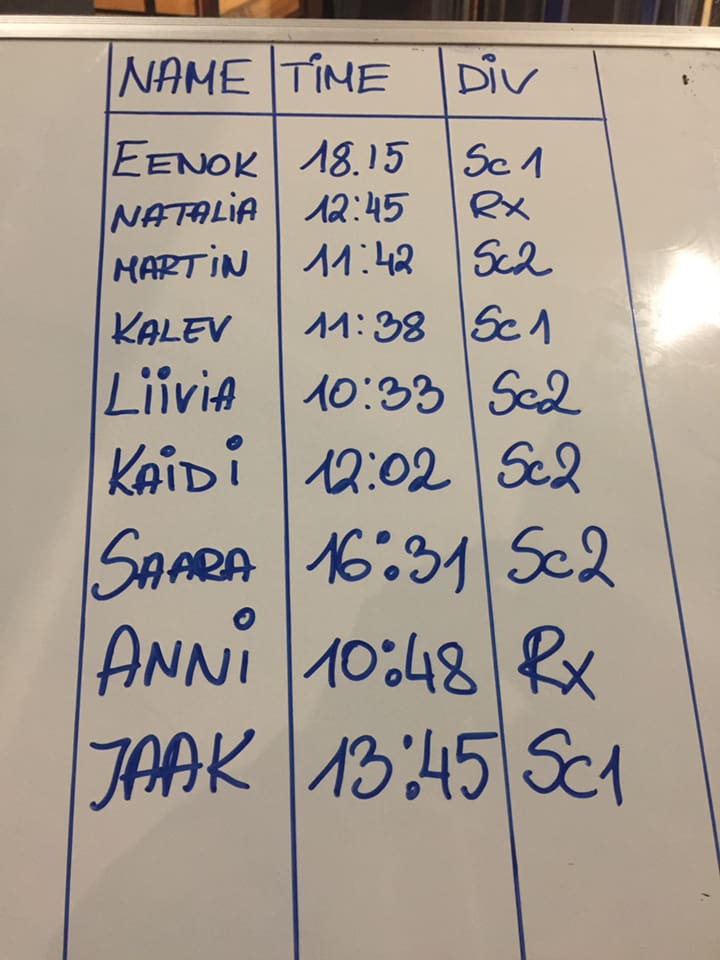 NAME TiME DiV
EENOK 18.15 Sc1
NATALiA 12:45 Rx
MARTiN 11:42 Sc2
KALEV 11:38 Sc1
LiiViA 10:33 Sc2
KAiDi 12:02 Sc2
SAARA 16:31 Sc2
ANNi 10:48 Rx
JAAK 13:45 Sc1